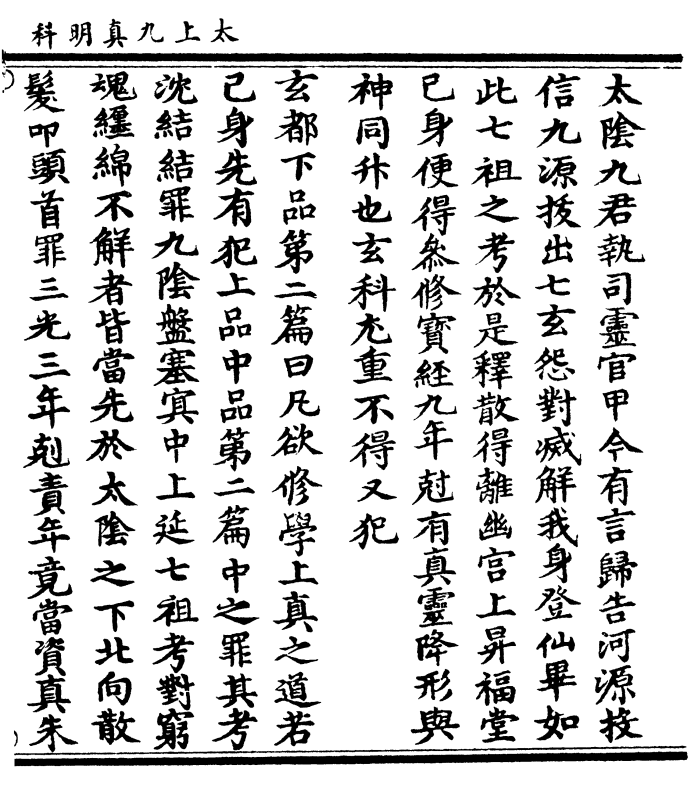 太上九真明科
太陰九君執司靈官甲今有言歸告河源投
信九源拔出七玄怨對滅解我身登仙畢如
此七祖之考於是釋散得離幽宮上昇福堂
已身便得叅修寶經九年尅有真靈降形與
神同升也玄科尤重不得又犯
玄都下品第二篇曰凡欲修學上真之道若
己身先有犯上品中品第二篇中之罪其考
沈結結罪九陰盤塞㝠中上延七祖考對窮
魂纏綿不解者皆當先於太陰之下北向散
髮叩頭首罪三光三年剋責年竟當資真朱